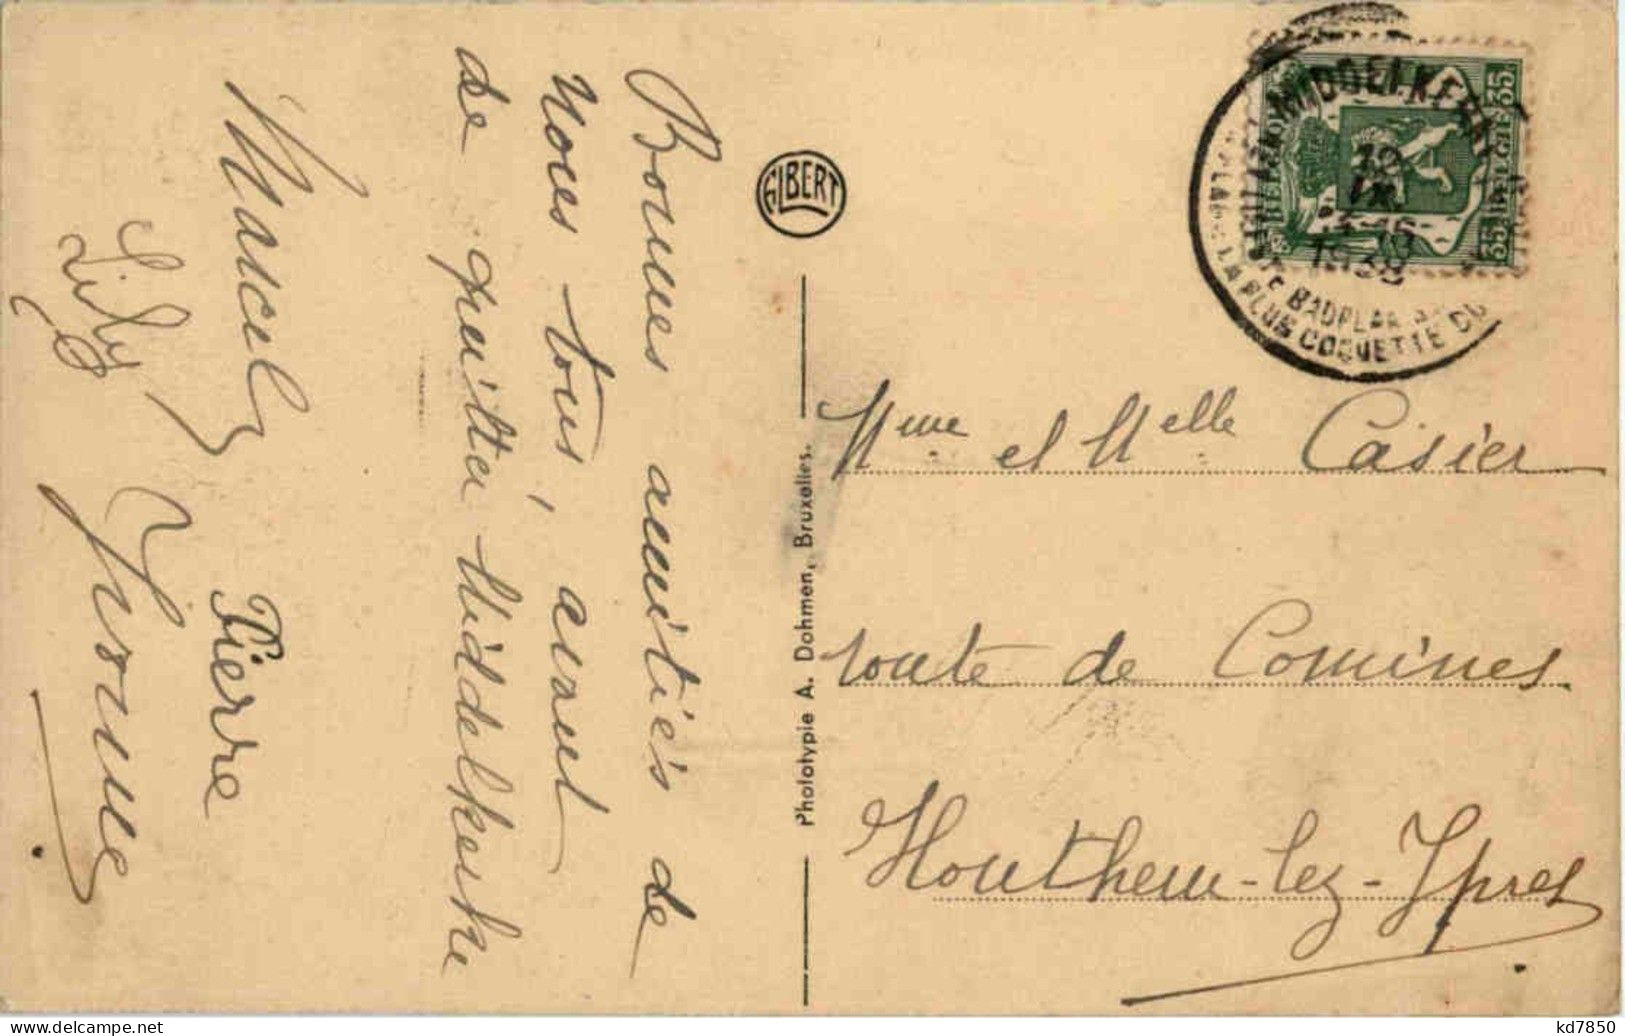 Bonnes amitiés de
nous tous, avant
de quitter Middelkerke
Marcel
Pierre
Lily
Yvonne
ELBERT
Phototypie A. Dohmen, Bruxelles.
MIDDELKERKE
1938
BADPLAA
LA PLUS COQUETTE DU
35
BELGIE 35
Mme et Melle Casier
route de Comines
Houthem-lez-Ypres
www.delcampe.net
kd7850